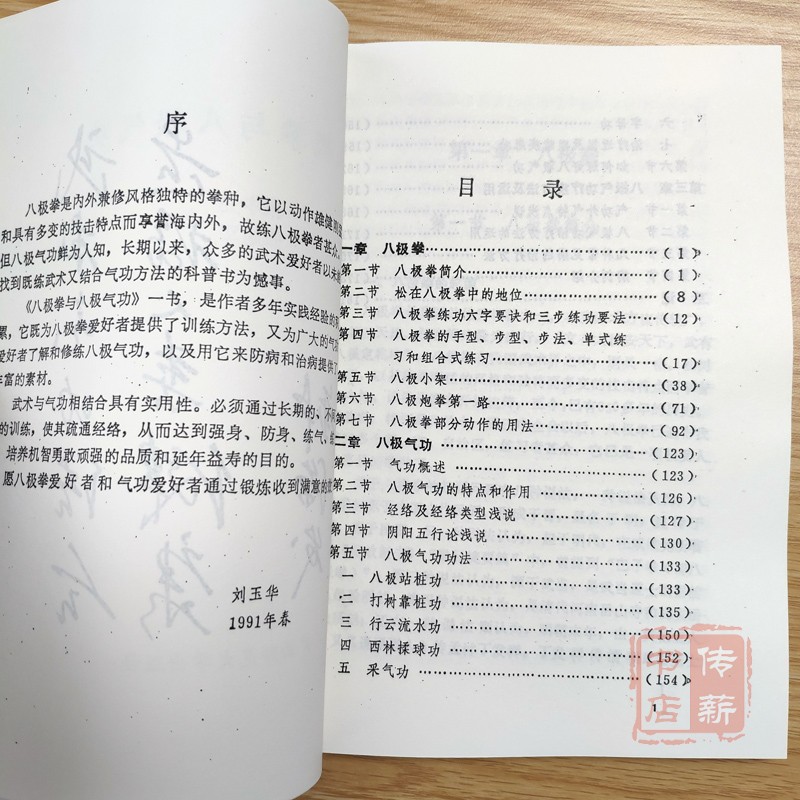 序
八极拳是内外兼修风格独特的拳种，它以动作雄健
和具有多变的技击特点而享誉海内外，故练八极拳者甚众，
但八极气功鲜为人知，长期以来，众多的武术爱好者以未
找到既练武术又结合气功方法的科普书为憾事。
《八极拳与八极气功》一书，是作者多年实践经验的
累，它既为八极拳爱好者提供了训练方法，又为广大的气
爱好者了解和修练八极气功，以及用它来防病和治病提供了
丰富的素材。
武术与气功相结合具有实用性。必须通过长期的、不
的训练，使其疏通经络，从而达到强身、防身、练气、
培养机智勇敢顽强的品质和延年益寿的目的。
愿八极拳爱好者和气功爱好者通过锻炼收到满意的
刘玉华
1991年春
目录
一章 八极拳……(1)
第一节 八极拳简介……(1)
第二节 松在八极拳中的地位……(8)
第三节 八极拳练功六字要诀和三步练功要法……(12)
第四节 八极拳的手型、步型、步法、单式练
习和组合式练习……(17)
第五节 八极小架……(38)
第六节 八极炮拳第一路……(71)
第七节 八极拳部分动作的用法……(92)
二章 八极气功……(123)
第一节 气功概述……(123)
第二节 八极气功的特点和作用……(126)
第三节 经络及经络类型浅说……(127)
第四节 阴阳五行论浅说……(130)
第五节 八极气功功法……(133)
一 八极站桩功……(133)
二 打树靠桩功……(135)
三 行云流水功……(150)
四 西林揉球功……(152)
五 采气功……(154)
1
传薪
书店